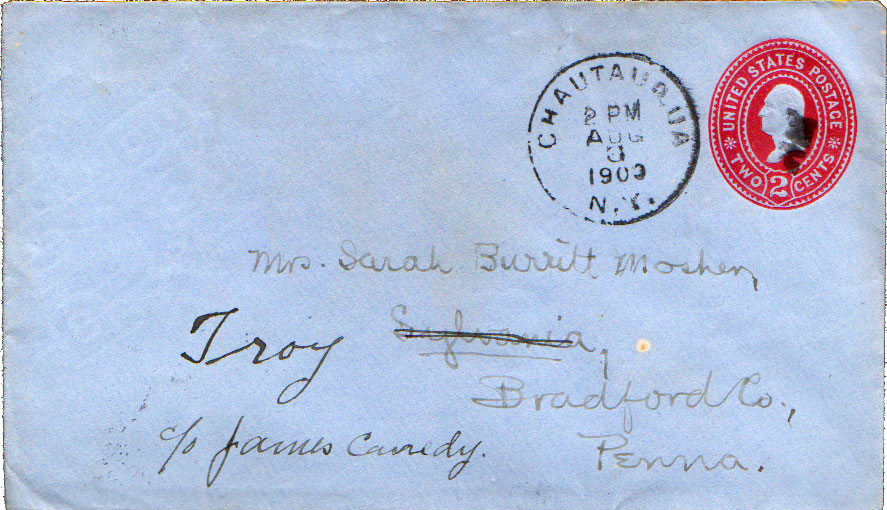 CHAUTAUQUA
2 PM
AUG
3
1903
N.Y.
UNITED STATES POSTAGE
TWO 2 CENTS
Mrs. Sarah Burritt Mosher,
Troy Sylvania,
Bradford Co.,
c/o James Canedy.
Penna.